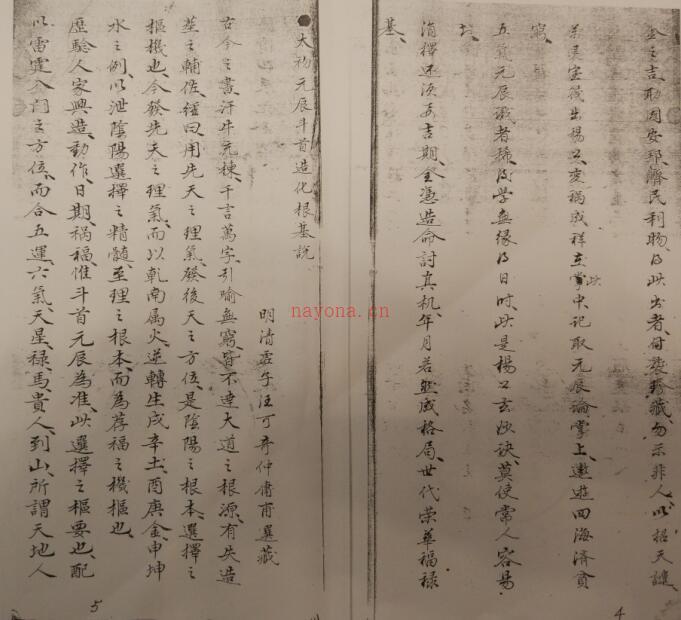 金之吉、助国安邦、濟民利物、得此出者、付袭珍藏、勿示非人、以招天譴、
宝筏出楊公、变祸成祥在掌中、此記取元辰論掌上、遨遊四海济貧
窮、
五氣元辰識者稀、後学無缘得日时、此是楊公玄妙訣、莫使常人容易
知、
涓擇还须吉期、全憑造命討真机、年月若然成格局、世代荣華福禄
基、
大初元辰斗首造化根基説
明清雲子汪可奇仲甫選藏
古今之書、汗牛充棟、千言萬字、引喻無窮、皆不達大道之根源、有失造
莖之輔佐、經曰用先天之理氣、發後天之方位、是陰陽之根本、選擇之
樞機也、今發先天之理氣、而以乾南属火、逆轉生戌辛土、酉庚金、申坤
水之例、以泄陰陽選擇之精髓、至理之根本、而為荐福之機樞也、
歷驗人家興造、動作日期祸福、惟斗首元辰為准、此選擇之樞要也、配
以雷霆入門之方位、而合五運六氣、天星、禄、馬、貴人、到山、所謂天地人
5
4
nayona.cn